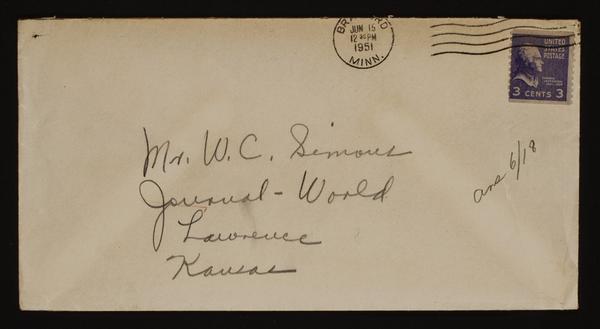 BRAINERD
JUN 15
12 30 PM
1951
MINN.
UNITED
STATES
POSTAGE
3 CENTS 3
Mr. W. C. Simons
Journal-World
Lawrence
Kansas
ans 6/18